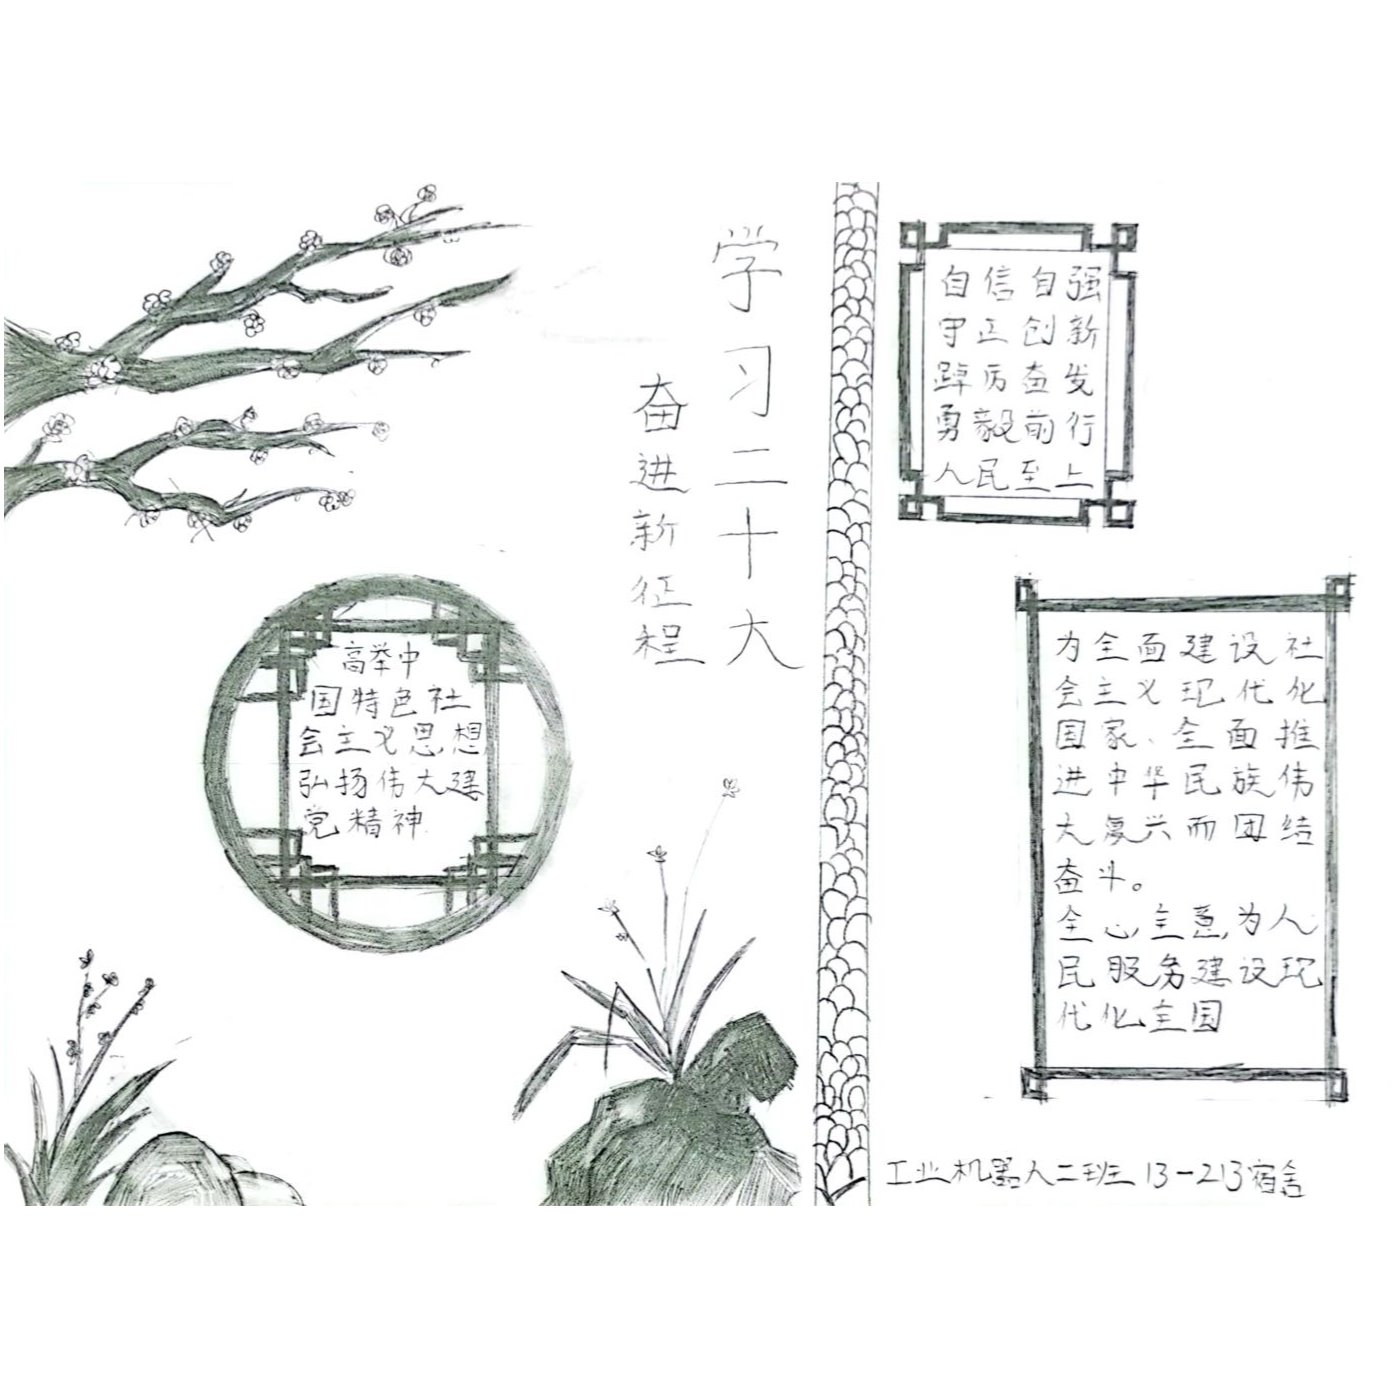 学习二十大
奋进新征程
高举中
国特色社
会主义思想
弘扬伟大建
党精神
自信自强
守正创新
踔厉奋发
勇毅前行
人民至上
为全面建设社
会主义现代化
国家、全面推
进中华民族伟
大复兴而团结
奋斗。
全心全意为人
民服务建设现
代化主国
工业机器人二班 13-213宿舍